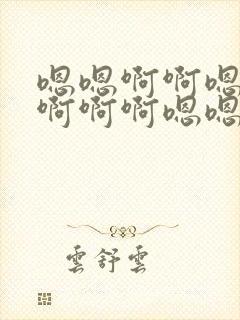 嗯嗯啊啊嗯
啊啊啊嗯嗯
雲舒雲